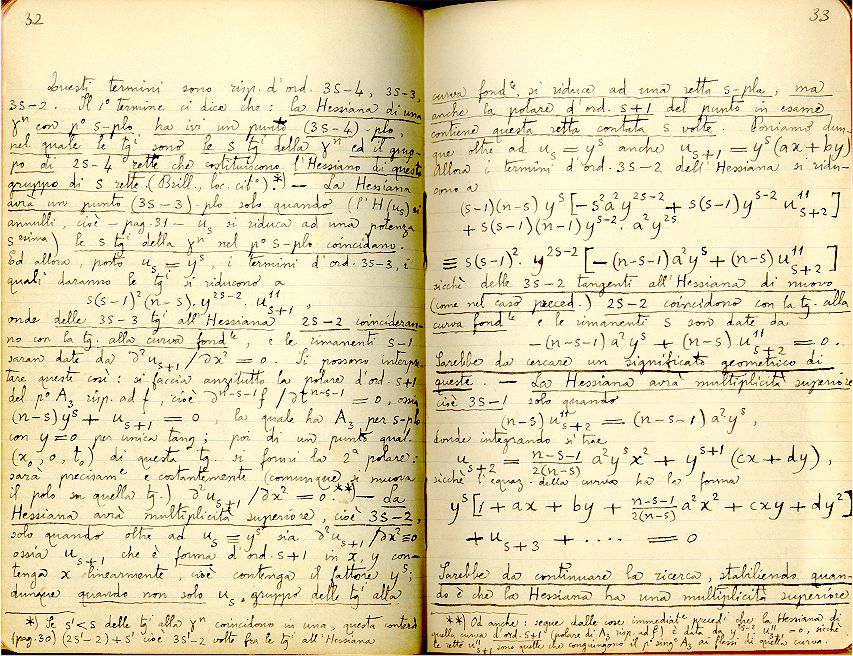 32
Questi termini sono risp. d'ord. 3s-4, 3s-3,
3s-2. Il 1° termine ci dice che: la Hessiana di una
γⁿ con p° s-plo ha ivi un punto (3s-4)-plo,
nel quale le tgⁱ sono le s tgⁱ della γⁿ ed il grup-
po di 2s-4 rette che costituiscono l'Hessiano di questo
gruppo di s rette (Brill, loc. cit°).*) — La Hessiana
avrà un punto (3s-3)-plo solo quando (l'H(u_s) si
annulli, cioè - pag. 31 - u_s si riduca ad una potenza
s^esima) le s tgⁱ della γⁿ nel p° s-plo coincidano.
Ed allora, posto u_s = y^s, i termini d'ord. 3s-3, i
quali daranno le tgⁱ si riducono a
s(s-1)²(n-s). y^{2s-2}. u^{11}_{s+1},
onde delle 3s-3 tgⁱ all'Hessiana 2s-2 coincideran-
no con la tg. alla curva fond^le, e le rimanenti s-1
saran date da ∂²u_{s+1}/∂x² = 0. Si possono interpre-
tare queste così: si faccia anzitutto la polare d'ord. s+1
del p° A₃ risp. ad f, cioè ∂^{n-s-1}f/∂t^{n-s-1} = 0, ossia
(n-s)y^s + u_{s+1} = 0, la quale ha A₃ per s-plo
con y=0 per unica tang; poi di un punto qual.
(x₀, 0, t₀) di questa tg. si formi la 2ª polare:
sarà precisam^e e costantemente (comunque si muova
il polo su quella tg.) ∂²u_{s+1}/∂x² = 0.**) — La
Hessiana avrà multiplicità superiore, cioè 3s-2,
solo quando oltre ad u_s ≡ y^s sia ∂²u_{s+1}/∂x² ≡ 0
ossia u_{s+1} che è forma d'ord. s+1 in x, y con-
tenga x linearmente, cioè contenga il fattore y^s;
dunque quando non solo u_s, gruppo delle tgⁱ alla
*) Se s'<s delle tgⁱ alla γⁿ coincidono in una, questa conterà
(pag. 30) (2s'-2)+s' cioè 3s'-2 volte fra le tgⁱ all'Hessiana
33
curva fond^le, si riduce ad una retta s-pla, ma
anche la polare d'ord. s+1 del punto in esame
contiene questa retta contata s volte. Poniamo dun-
que oltre ad u_s = y^s anche u_{s+1} = y^s(ax+by)
Allora i termini d'ord. 3s-2 dell'Hessiana si ridu-
cono a
(s-1)(n-s) y^s [-s²a²y^{2s-2} + s(s-1)y^{s-2} u^{11}_{s+2}]
+ s(s-1)(n-1)y^{s-2}. a²y^{2s}
≡ s(s-1)². y^{2s-2} [-(n-s-1)a²y^s + (n-s)u^{11}_{s+2}]
sicchè delle 3s-2 tangenti all'Hessiana di nuovo
(come nel caso preced.) 2s-2 coincidono con la tg. alla
curva fond^le e le rimanenti s son date da
-(n-s-1)a²y^s + (n-s)u^{11}_{s+2} = 0.
Sarebbe da cercare un significato geometrico di
queste. — La Hessiana avrà multiplicità superiore
cioè 3s-1 solo quando
(n-s)u^{11}_{s+2} = (n-s-1)a²y^s,
donde integrando si trae
u_{s+2} = \frac{n-s-1}{2(n-s)} a²y^s x² + y^{s+1}(cx+dy),
sicchè l'equaz. della curva ha la forma
y^s[1 + ax + by + \frac{n-s-1}{2(n-s)} a²x² + cxy + dy²]
+ u_{s+3} + .... = 0
Sarebbe da continuare la ricerca, stabiliendo quan-
do è che la Hessiana ha una multiplicità superiore
**) Od anche: segue dalle cose immediat^e precedⁱ che la Hessiana di
quella curva d'ord. s+1 (polare di A₃ risp. ad f) è data da y^{s-2} u^{11}_{s+1} = 0, sicchè
le rette u^{11}_{s+1} sono quelle che congiungono il p° sing^e A₃ ai flessi di quella curva.